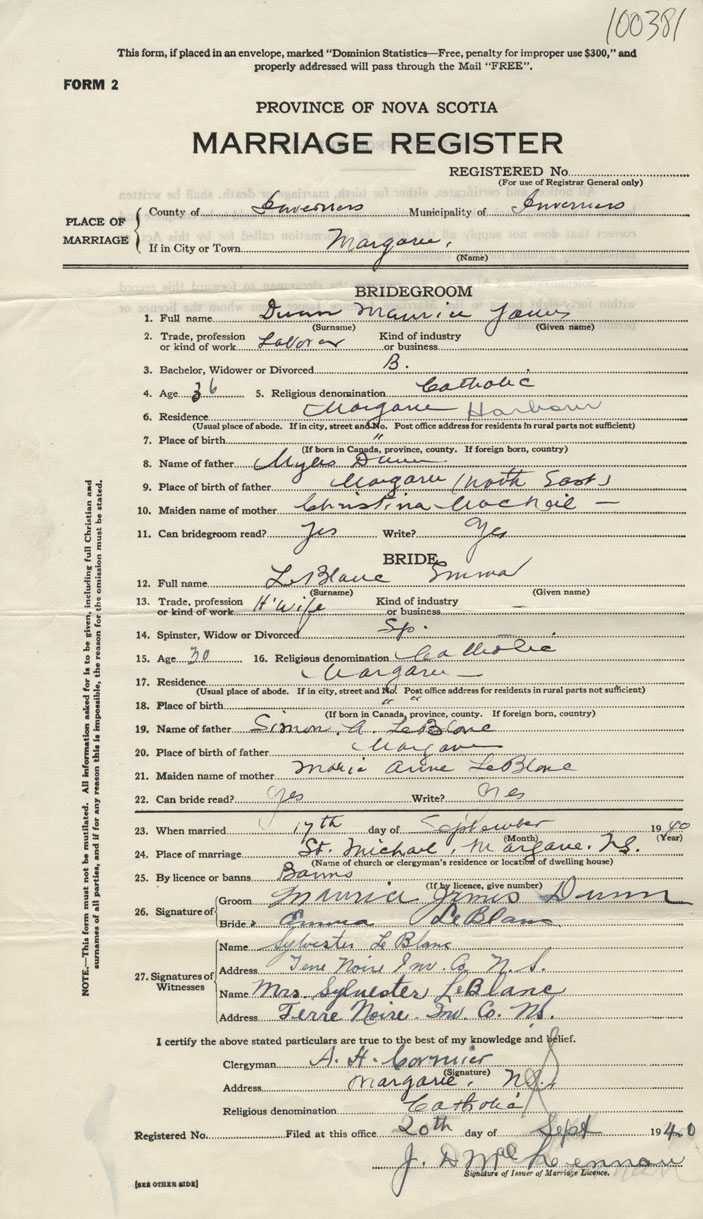 100381
This form, if placed in an envelope, marked "Dominion Statistics—Free, penalty for improper use $300," and
properly addressed will pass through the Mail "FREE".
FORM 2
PROVINCE OF NOVA SCOTIA
MARRIAGE REGISTER
REGISTERED No.
(For use of Registrar General only)
PLACE OF MARRIAGE
County of Inverness Municipality of Inverness
If in City or Town Margaree,
(Name)
BRIDEGROOM
1. Full name Dunn Maurice James
(Surname) (Given name)
2. Trade, profession or kind of work Laborer Kind of industry or business
3. Bachelor, Widower or Divorced B.
4. Age 36 5. Religious denomination Catholic
6. Residence Margaree Harbour
(Usual place of abode. If in city, street and No. Post office address for residents in rural parts not sufficient)
7. Place of birth "
(If born in Canada, province, county. If foreign born, country)
8. Name of father Myles Dunn
9. Place of birth of father Margaree (North East)
10. Maiden name of mother Christina MacNeil —
11. Can bridegroom read? Yes Write? Yes
BRIDE
12. Full name LeBlanc Emma
(Surname) (Given name)
13. Trade, profession or kind of work H'wife Kind of industry or business —
14. Spinster, Widow or Divorced Sp.
15. Age 30 16. Religious denomination Catholic
17. Residence Margaree —
(Usual place of abode. If in city, street and No. Post office address for residents in rural parts not sufficient)
18. Place of birth " "
(If born in Canada, province, county. If foreign born, country)
19. Name of father Simon. A. LeBlanc
20. Place of birth of father Margaree
21. Maiden name of mother Marie Anne LeBlanc
22. Can bride read? Yes Write? Yes
23. When married 17th day of September 1940
(Month) (Year)
24. Place of marriage St. Michael, Margaree. N.S.
(Name of church or clergyman's residence or location of dwelling house)
25. By licence or banns Banns
(If by licence, give number)
26. Signature of
Groom Maurice James Dunn
Bride Emma LeBlanc
27. Signatures of Witnesses
Name Sylvester LeBlanc
Address Terre Noire Inv. Co. N. S.
Name Mrs. Sylvester LeBlanc
Address Terre Noire. Inv. Co. N.S.
I certify the above stated particulars are true to the best of my knowledge and belief.
Clergyman A. H. Cormier
(Signature)
Address Margaree, N.S.
Religious denomination Catholic
Registered No. Filed at this office 20th day of Sept 1940
J. D. McLennan
Signature of Issuer of Marriage Licence.
[SEE OTHER SIDE]
NOTE.—This form must not be mutilated. All information asked for is to be given, including full Christian and
surnames of all parties, and if for any reason this is impossible, the reason for the omission must be stated.